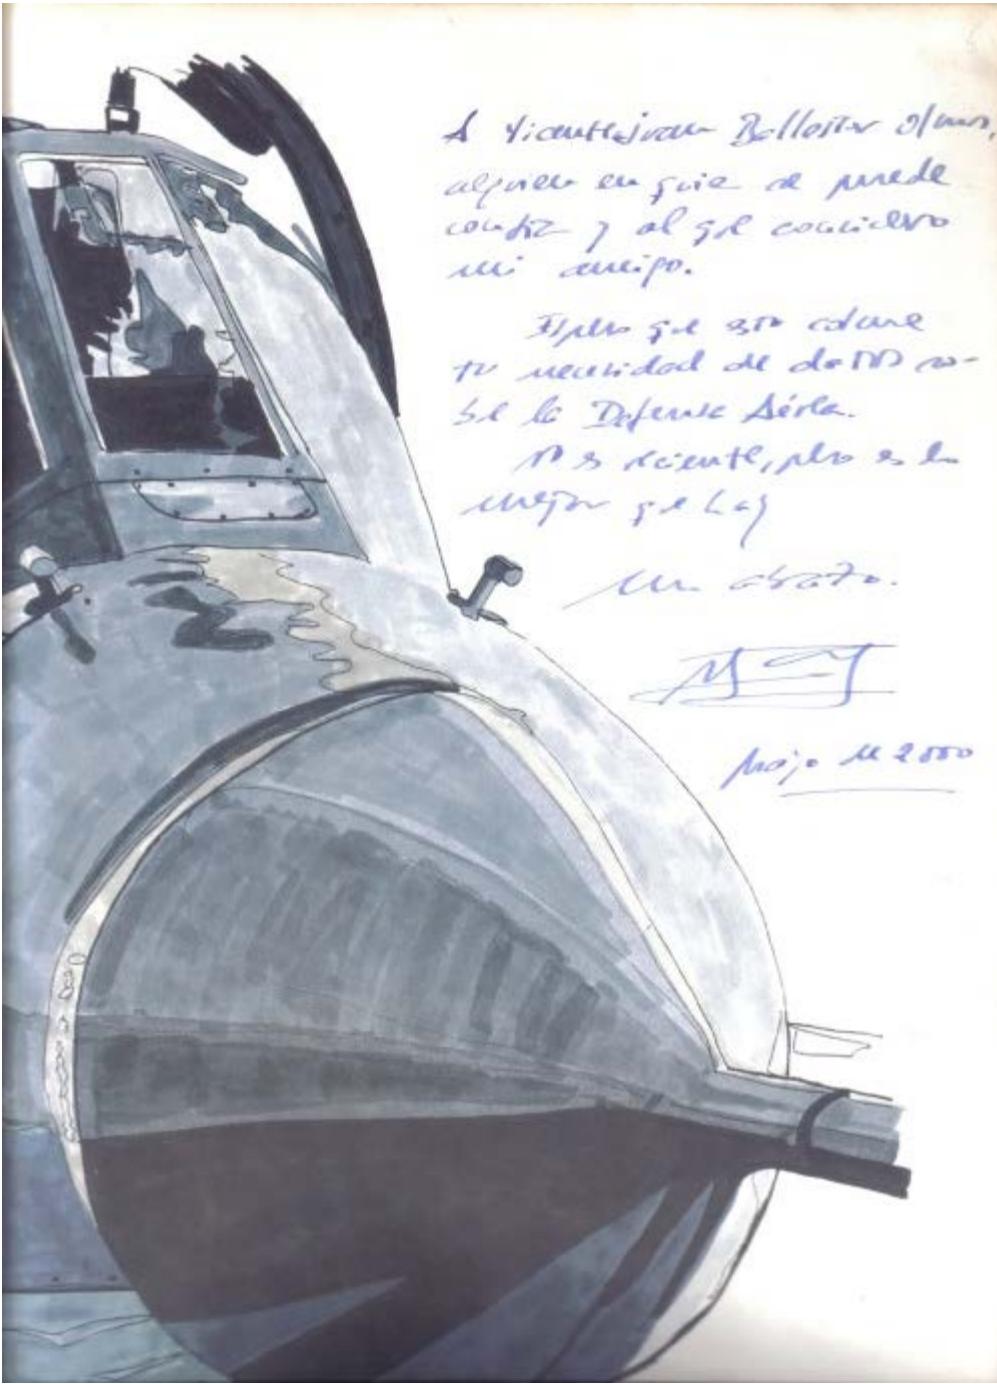 A Vicente-Juan Ballester Olmos,
alguien en quie se puede
confiar y al que considero
mi amigo.
Espero que esto colme
tu necesidad de datos so-
bre la Defensa Aérea.
No es reciente, pero es lo
mejor que hay
Un abrazo.
Mayo de 2000